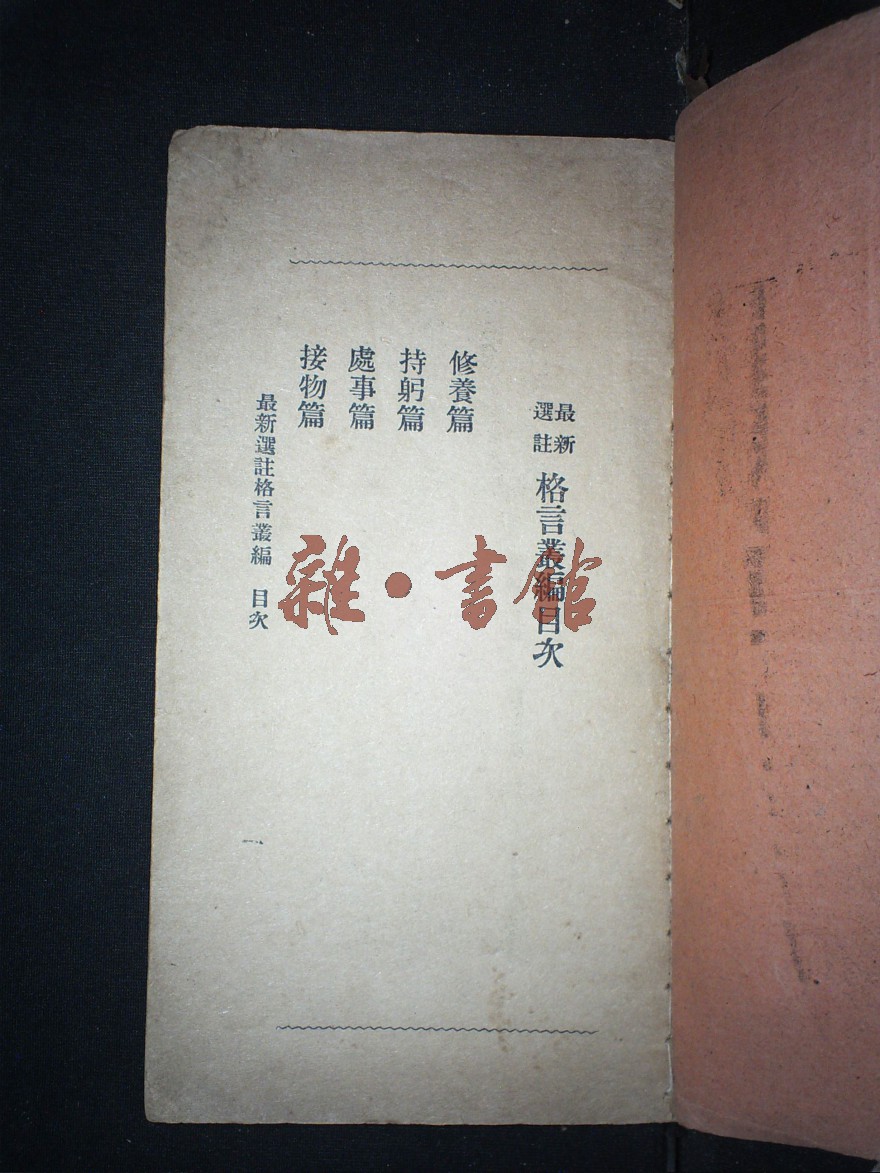 最新選註 格言叢編目次
修養篇
持躬篇
處事篇
接物篇
最新選註格言叢編 目次 一
雜·書館